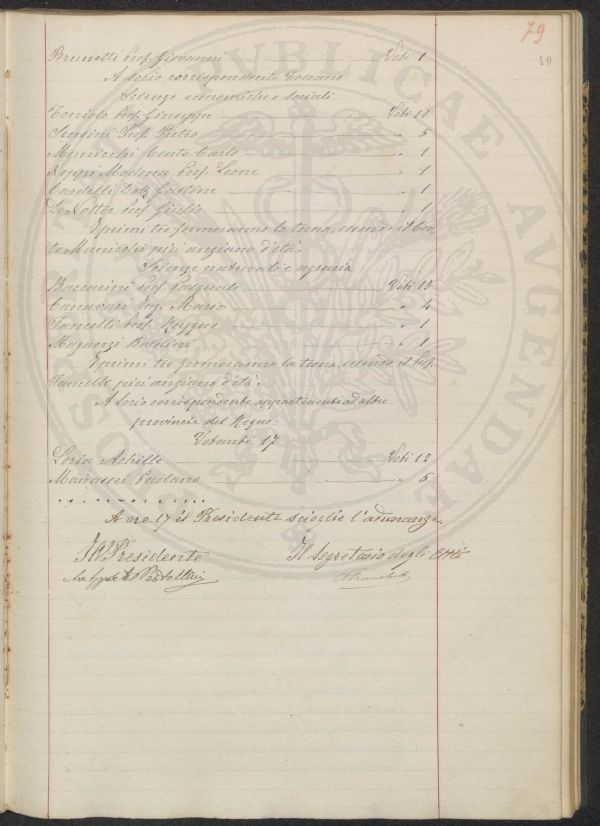 79
40
Brunetti Prof. Giovanni Voti 1
A socio corrispondente toscano
Scienze economiche e sociali
Toniolo Prof. Giuseppe Voti 10
Sensini Prof. Pietro " 5
Municchi Conte Carlo " 1
Neppi Modona Prof. Leone " 1
Cardelli Giustino " 1
Prof. Giulio " 1
I primi tre formeranno la terna, essendo il Con-
te Municchi più anziano d'età.
Scienze naturali e agraria
Baccarini Prof. Pasquale Voti 13
Ing. Mario " 4
Fancelli Prof. Ruggero " 1
Maganzi Baldini " 1
I primi tre formeranno la terna, essendo il Prof.
Fancelli più anziano d'età.
A Socio corrispondente appartenente ad altre
provincie del Regno:
Votanti 17
Loria Achille Voti 12
Manassei Paolano " 5
A ore 17 il Presidente scioglie l'adunanza.
Il Presidente Il Segretario degli Atti
PVBLICAE
AVGENDAE